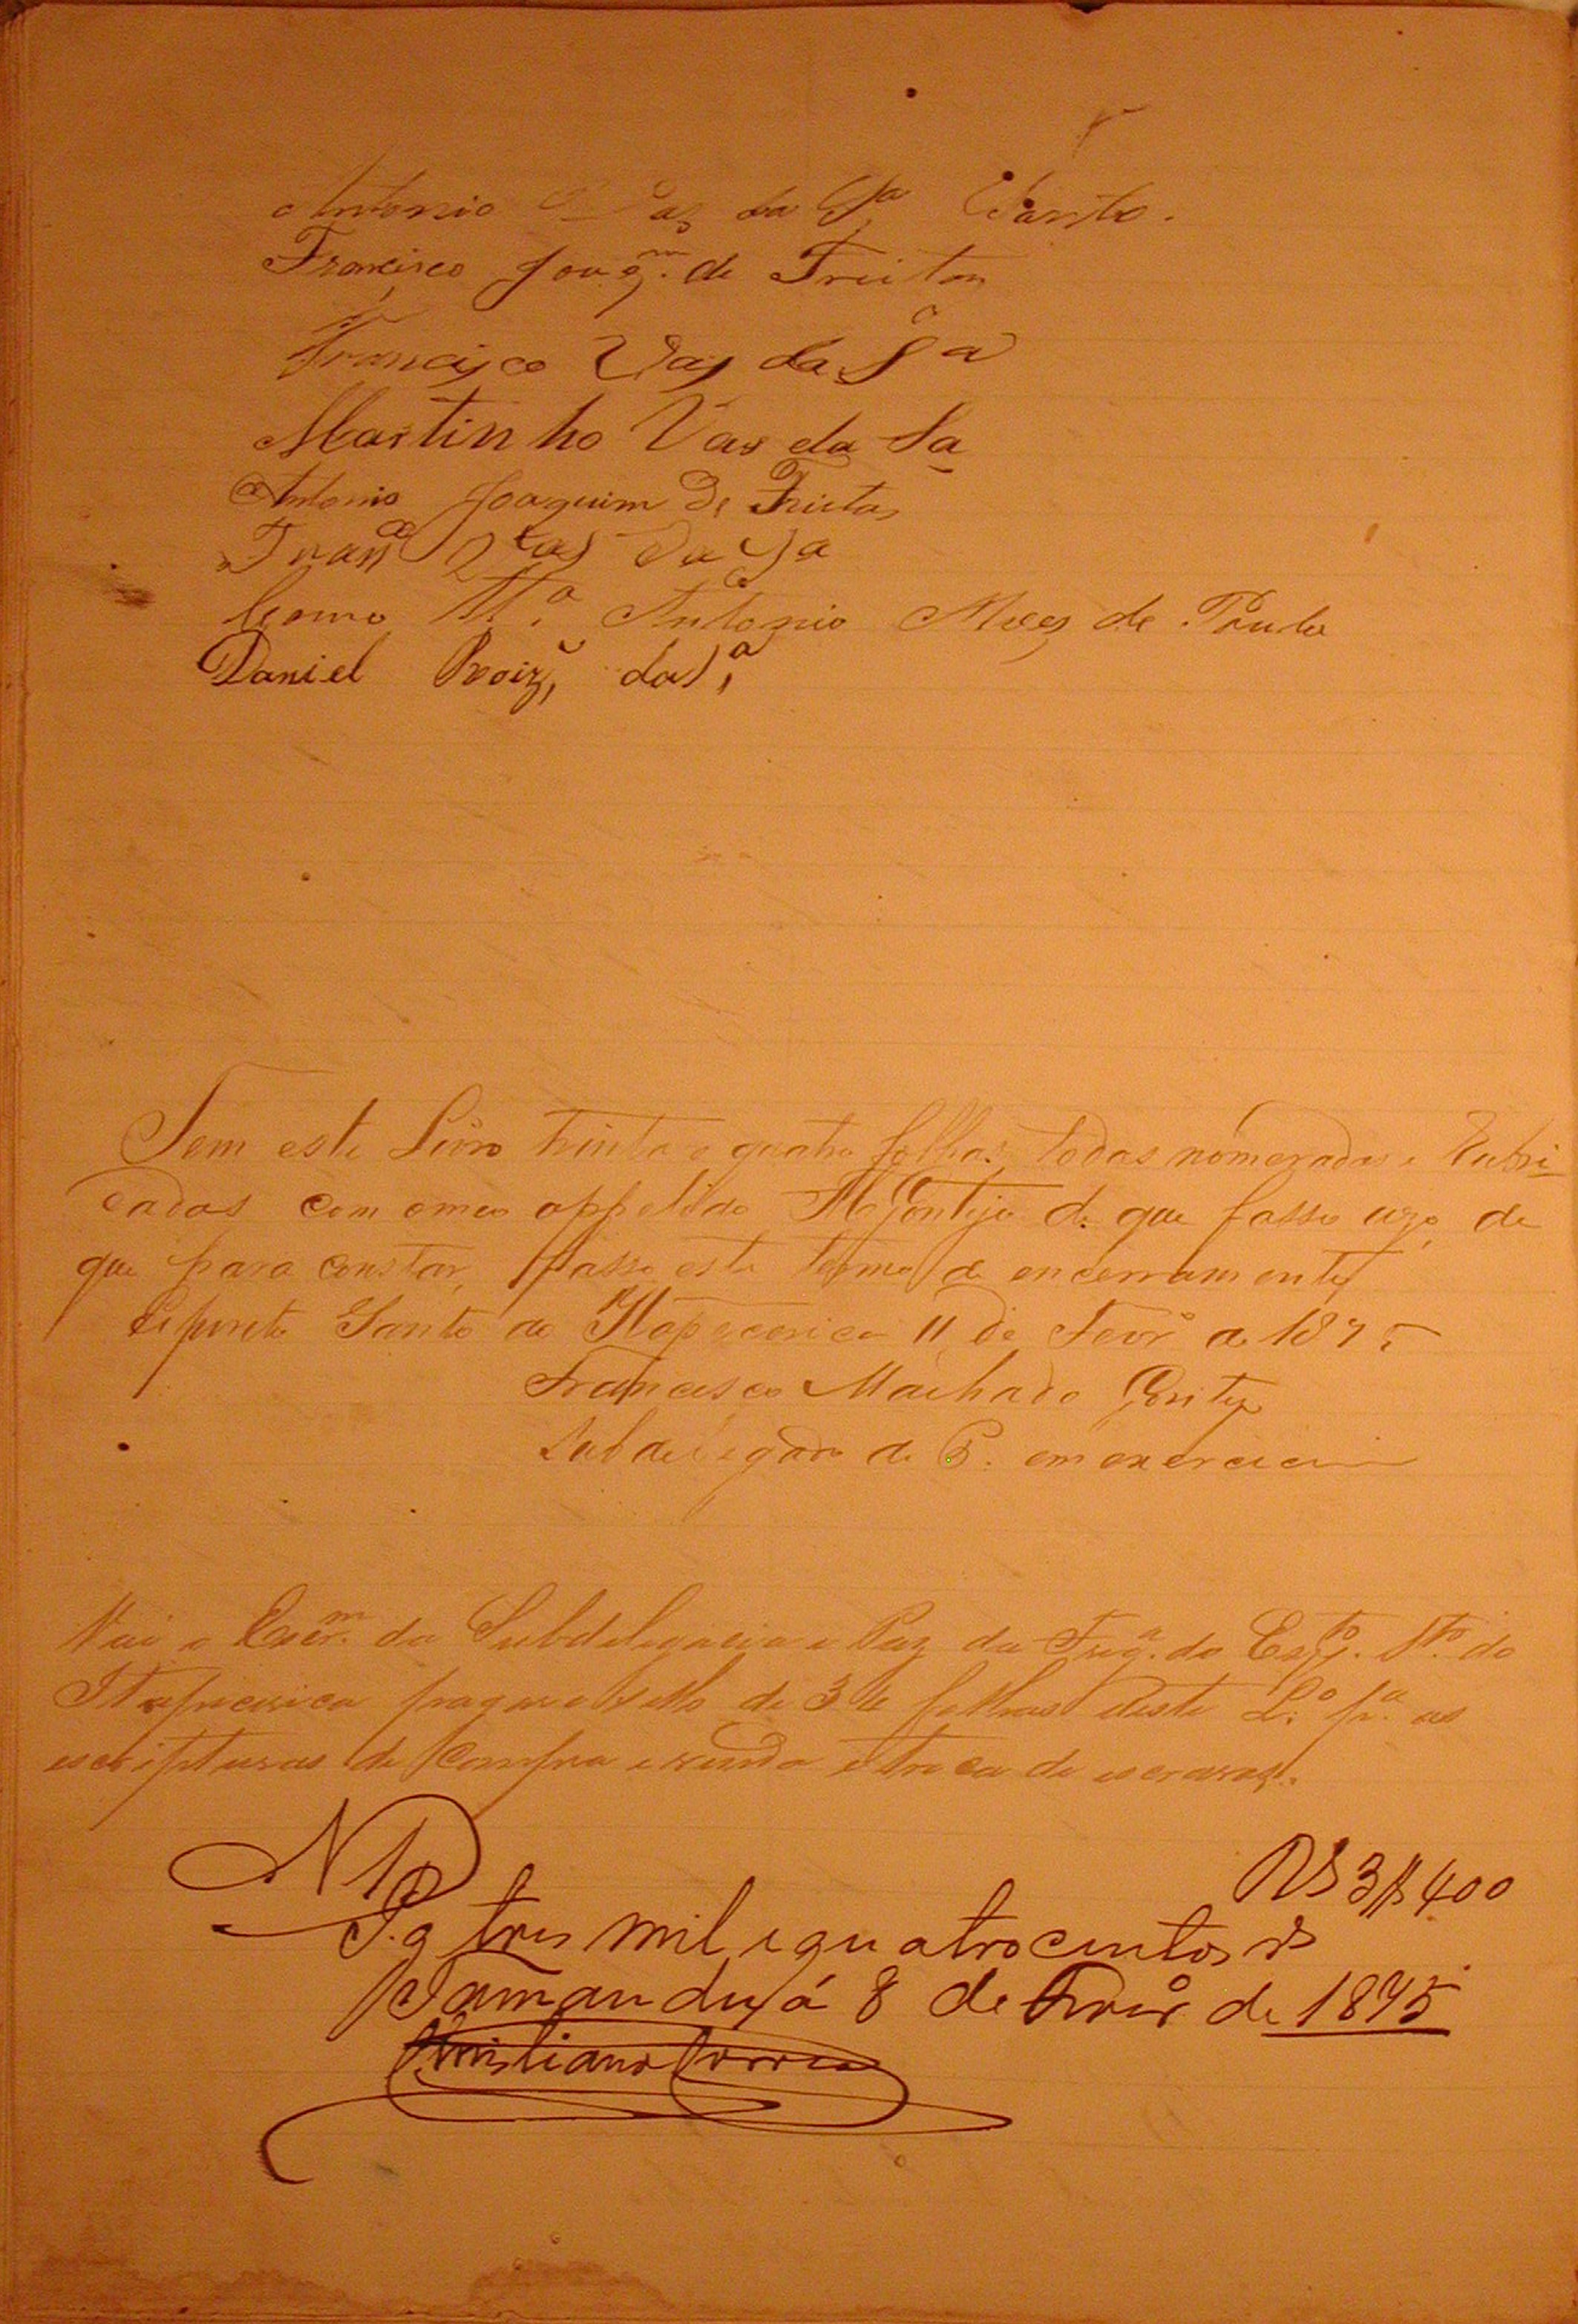 Antonio Vas da S.ª
Francisco Joaq.m de Freitas
Francisco Vas da Sª
Martinho Vas da Sa
Antonio Joaquim de Freitas
Franco Vas da Sa
Como Ttª Antonio Alves de Paula
Daniel Roiz, da Sª
Tem este Livro trinta e quatro folhas todas nomeradas e Rubri
cadas com omeo appelido MGontijo de que fasso uzo, de
que para constar, passo este termo de encerramento
Espireto Santo do Itapecerica 11 de Fevrº de 1875
Francisco Machado Gontijo
Subdelegado de P. em exercicio
Vai o Escr.m da Subdelegacia e Paz da Freg.ª do Esp.to S.to do
Itapecerica pagar o sello de 34 folhas deste L.º p.ª as
escripturas de compra e venda e troca de escravos.
N 1 RS 3$400
P.g tres mil e quatrocentos rs
Tamanduá 8 de Fevrº de 1875
Correa